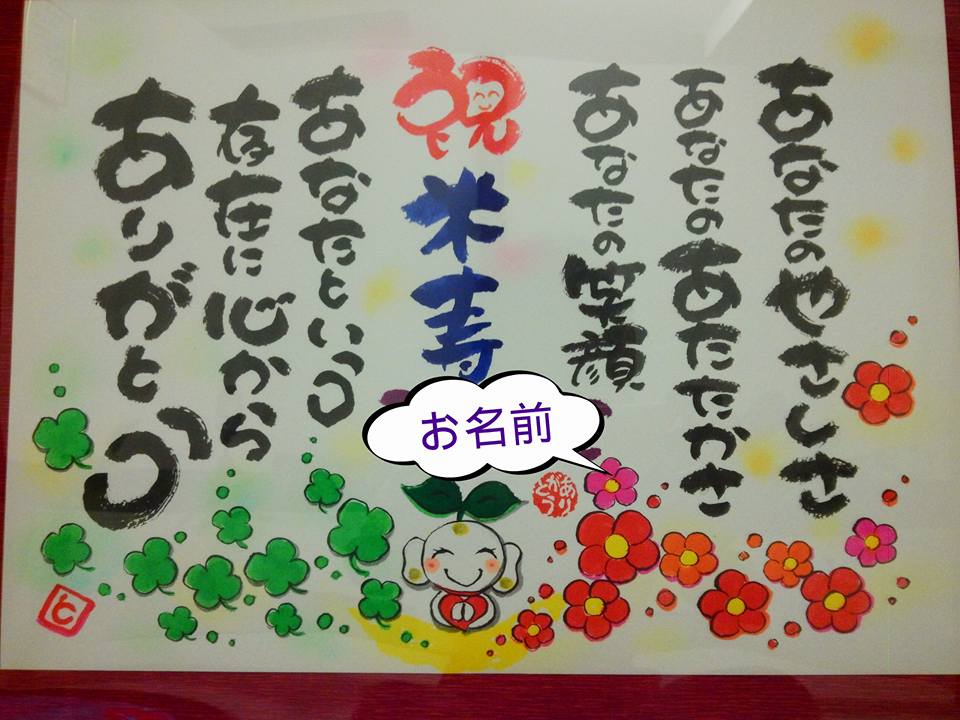 あなたのやさしさ
あなたのあたたかさ
あなたの笑顔
祝
米寿
お名前
ありがとう
あなたという
存在に心から
ありがとう
と